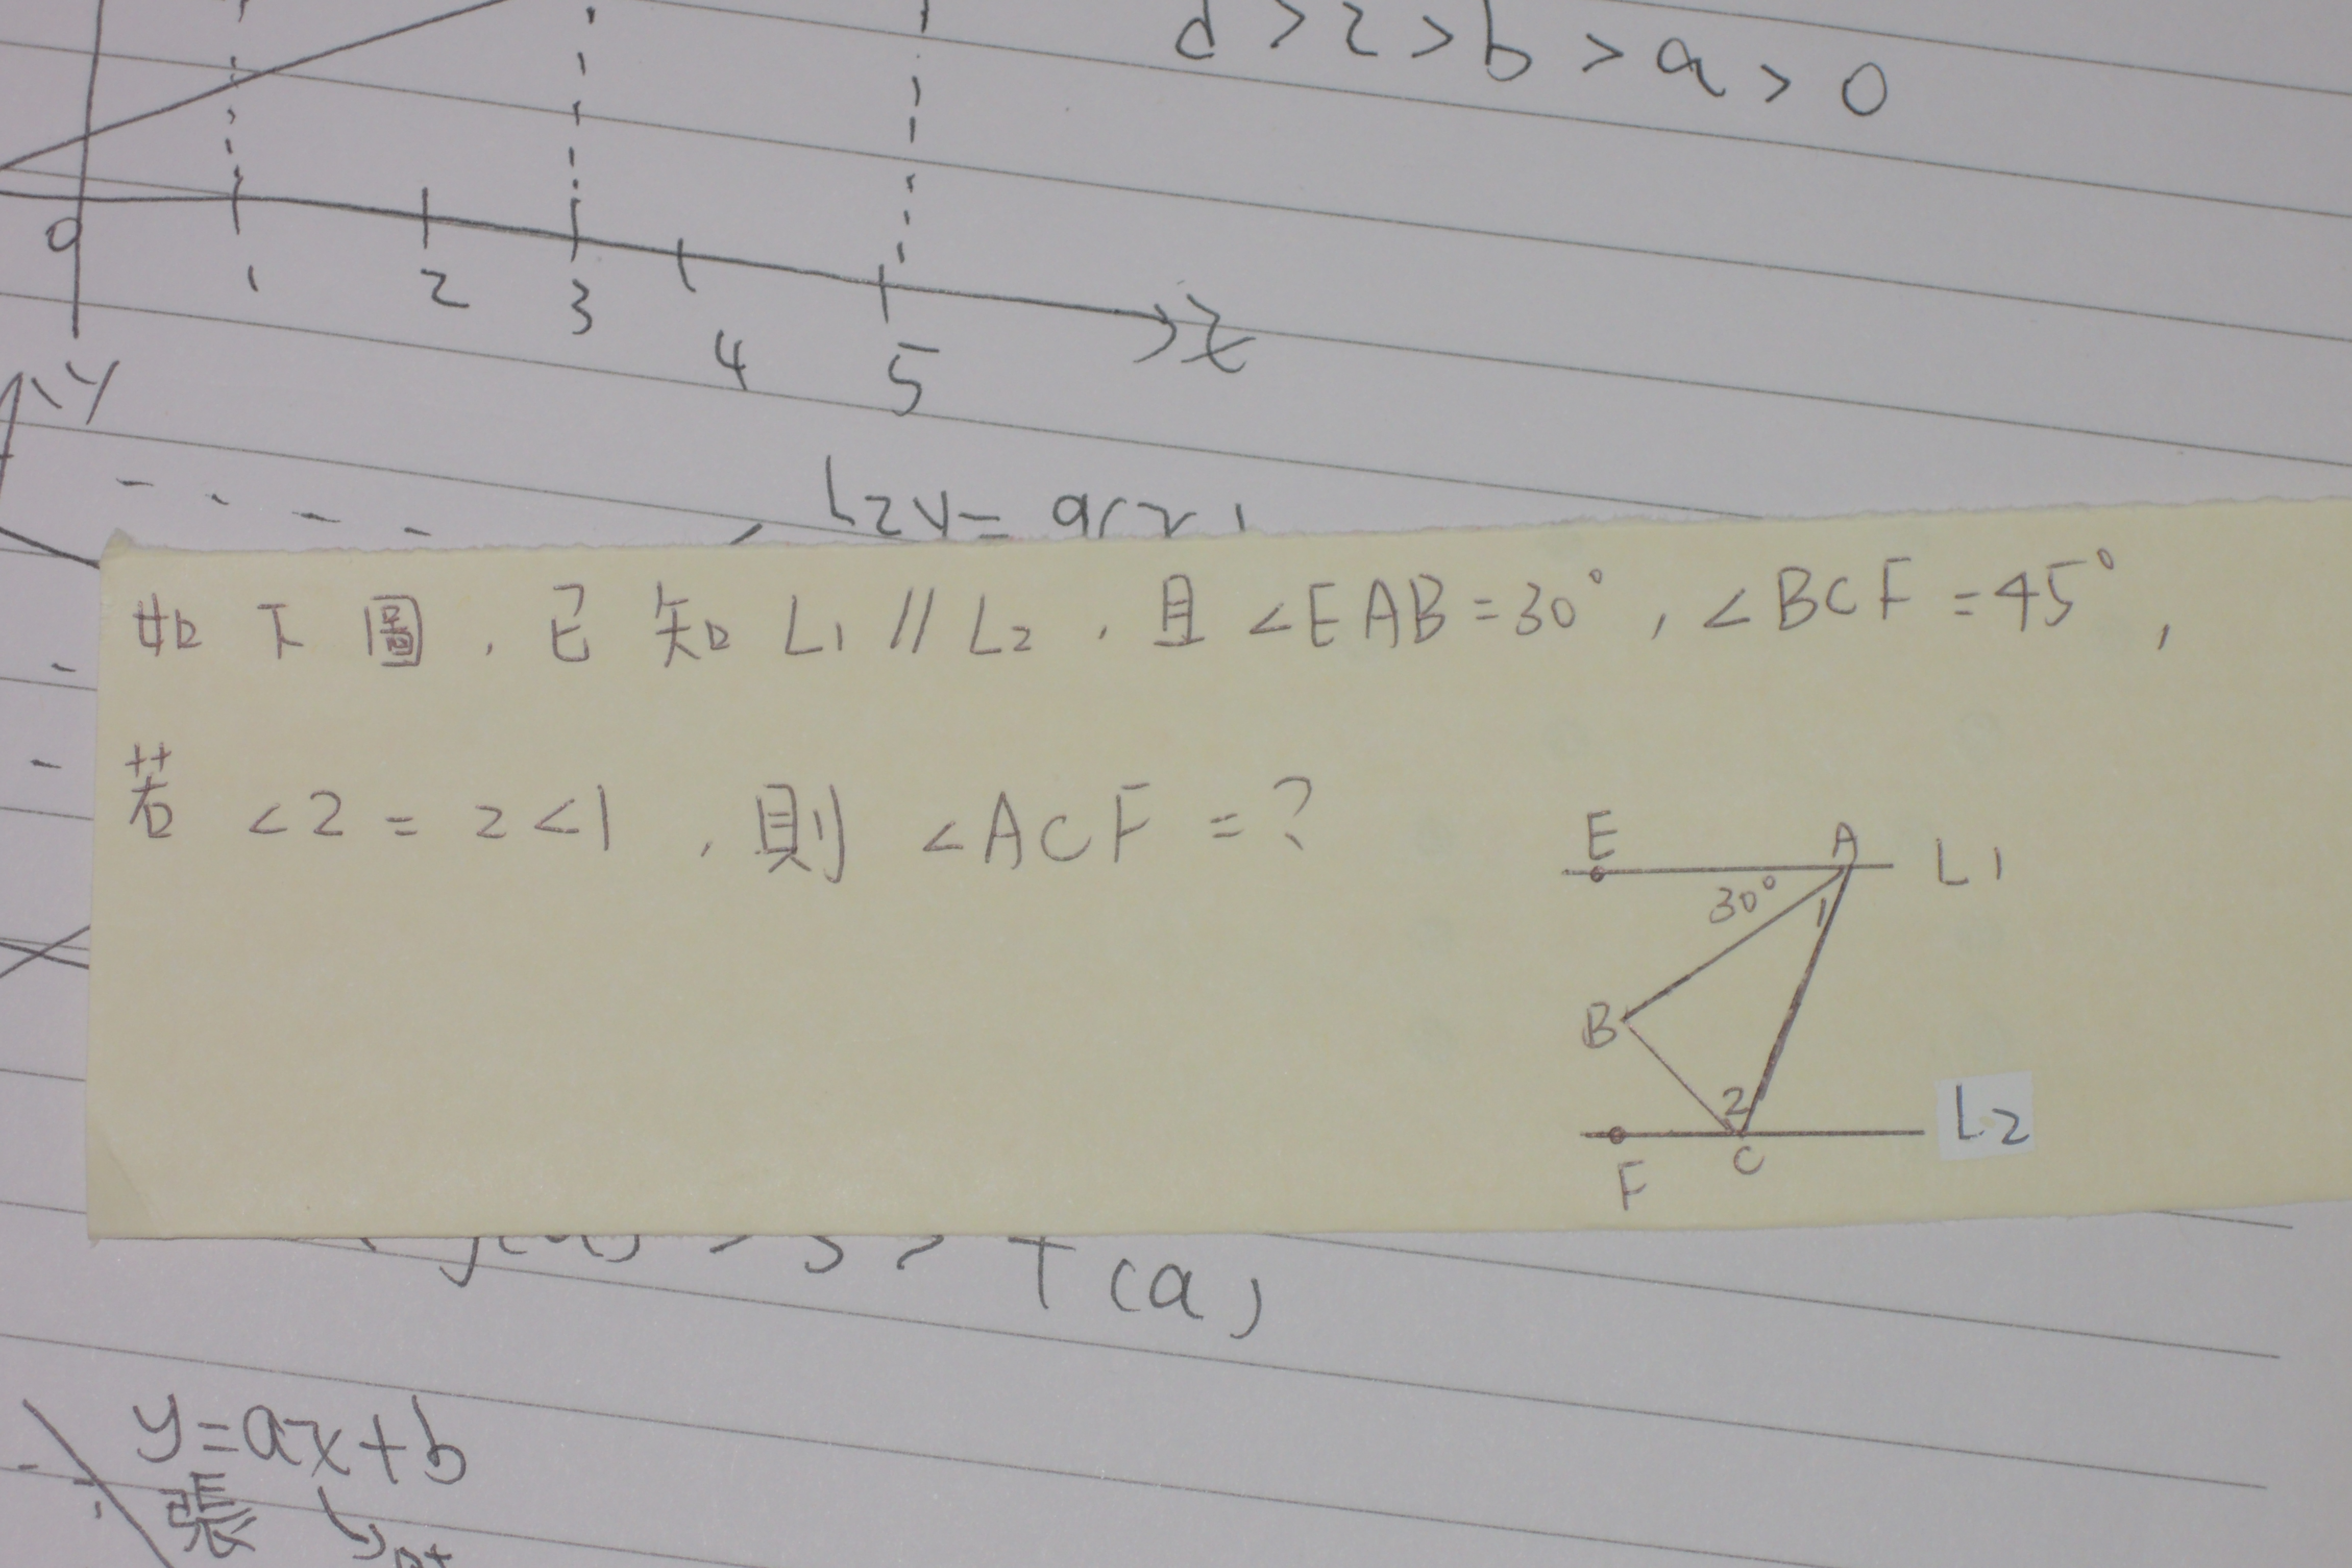 d > 2 > b > a > 0
0
1
2
3
4
5
x
y
L2y=
如下圖，已知 L1 // L2，且 ∠EAB=30°，∠BCF=45°，
若 ∠2 = 2∠1，則 ∠ACF = ?
E
A
L1
30°
1
B
2
L2
F
C
(a)
y=ax+b
張